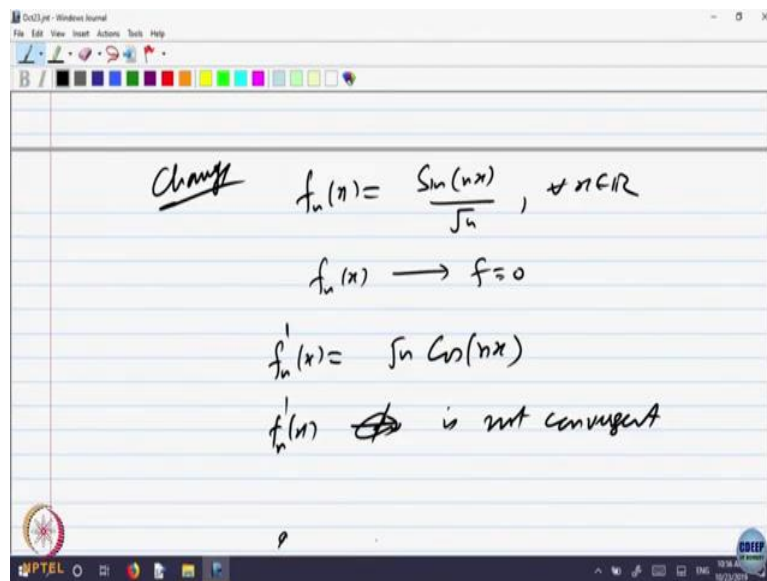 Oct23.jnt - Windows Journal
File Edit View Insert Actions Tools Help
B I
Change fₙ(x) = Sin(nx)/√n, ∀ x∈ℝ
fₙ(x) ⟶ f = 0
fₙ'(x) = √n Cos(nx)
fₙ'(x) is not convergent
NPTEL
CDEEP
ENG
10/23/2019